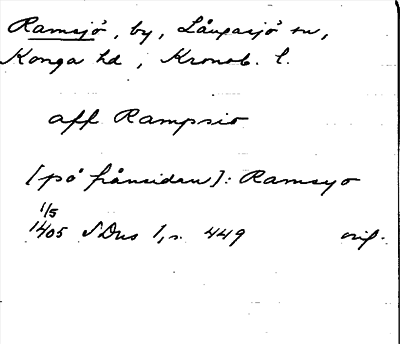 Ramsjö, by, Långasjö sn,
Konga hd, Kronob. l.
aff Rampsio
[på frånsidan]: Ramsyo
1/5
1405 SDns 1, s. 449 orig.